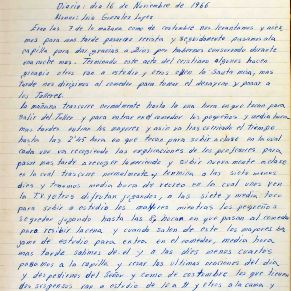 Diario: dia 16 de Noviembre de 1966
Alumno: Luis Gonzalez Lopez
Eran las 7 de la mañana como de costumbre nos levantamos y nos
mas para una tarde pasamos a la
capilla para dar gracias a Dios por habernos conservado durante
una noche mas. Terminado este acto del cristiano algunos hacen
gimnasio otros van a estudio y otros oyen la Santa misa, mas
tarde nos dirigimos al comedor para tomar el desayuno y pasar a
los Talleres.
La mañana trascurre normalmente hasta la una hora en que tocan para
salir del Taller y para entrar en el comedor los pequeños y media hora
mas tarde entran los mayores y asin va trascurriendo el tiempo
hasta las 2'45 hora en que tocan para subir a clase en la cual
cada uno va recogiendo las explicaciones de los profesores para
pasar mas tarde a recoger la merienda y subir nuevamente a clase
en la cual trascurre normalmente y termina a las siete menos
diez y tenemos media hora de recreo en la cual unos ven
la TV, otros disfrutan jugando, a las siete y media tocan
para subir a estudio los mientras los pequeños
seguedor jugando hasta las 8 horas en que pasan al comedor
para recibir la cena, y cuando salen de este los mayores
de estudio para entrar en el comedor, media hora
mas tarde salimos de el y a las diez menos cuarto
pasamos a la capilla y rezar las ultimas oraciones del dia
y despedirnos del Señor y como de costumbre los que tienen
dos suspensos van a estudio de 10 a 11 y otros a la cama y